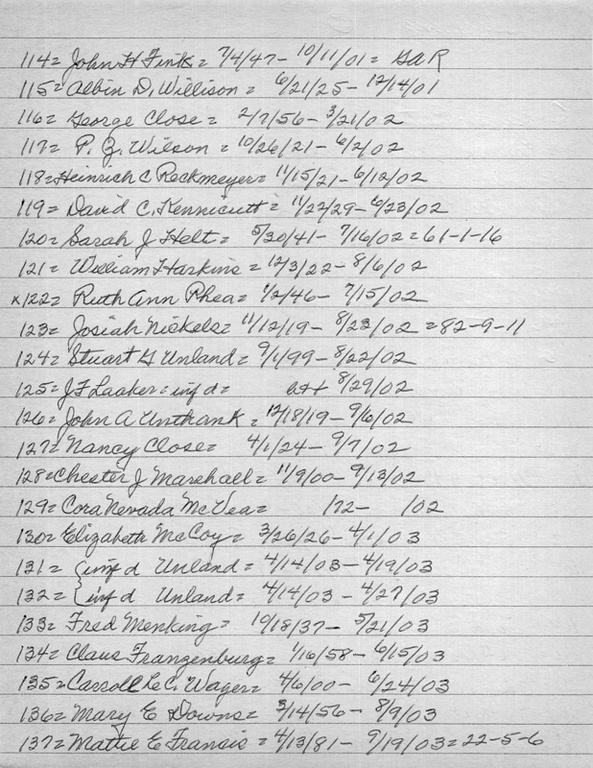 114= John H Fink = 7/4/47- 10/11/01= GAR
115= Albin D. Willison = 6/21/25- 12/14/01
116= George Close = 2/7/56- 3/21/02
117= P. G. Wilson = 10/26/21- 6/2/02
118= Heinrich C Reckmeyer= 11/15/21- 6/12/02
119= David C. Kennicutt= 11/22/29- 6/23/02
120= Sarah J Helt= 5/30/41- 7/16/02=61-1-16
121= William Harkins= 12/3/22- 8/6/02
x122= Ruth Ann Rhea= 1/2/46- 7/15/02
123= Josiah Nickels= 11/12/19- 8/23/02 =82-9-11
124= Stuart G Unland= 9/1/99- 8/22/02
125= J F Laaker= inf d= 8/29/02
126= John A Unthank = 12/18/19- 9/6/02
127= Nancy Close= 4/1/24- 9/7/02
128= Chester J Marshall= 11/9/00- 9/13/02
129= Cora Nevada McVea= /72- /02
130= Elizabeth McCoy= 3/26/26- 4/1/03
131= {inf d Unland= 4/14/03- 4/19/03
132= {inf d Unland= 4/14/03- 4/27/03
133= Fred Menking= 10/18/37- 5/21/03
134= Claus Frangenburg= 1/16/58- 6/15/03
135= Carroll Le C. Wager= 4/6/00- 6/24/03
136= Mary E Downs= 3/14/56- 8/9/03
137= Mattie E Fransis = 4/13/81- 9/19/03=22-5-6